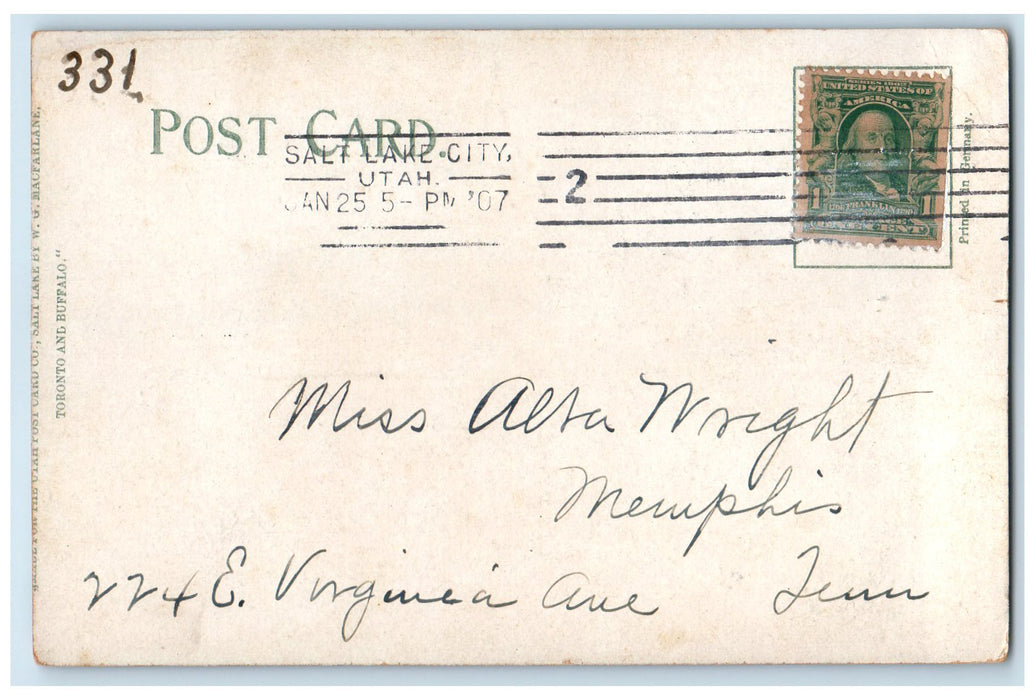 331
POST CARD.
SALT LAKE CITY,
UTAH.
JAN 25 5- PM '07
2
SERIES 1902
UNITED STATES OF
AMERICA
1 FRANKLIN 1
CENT
Printed in Germany.
Miss Alta Wright
Memphis
224 E. Virginia Ave Tenn
THE UTAH POST CARD CO., SALT LAKE BY W. G. MACFARLANE,
TORONTO AND BUFFALO."